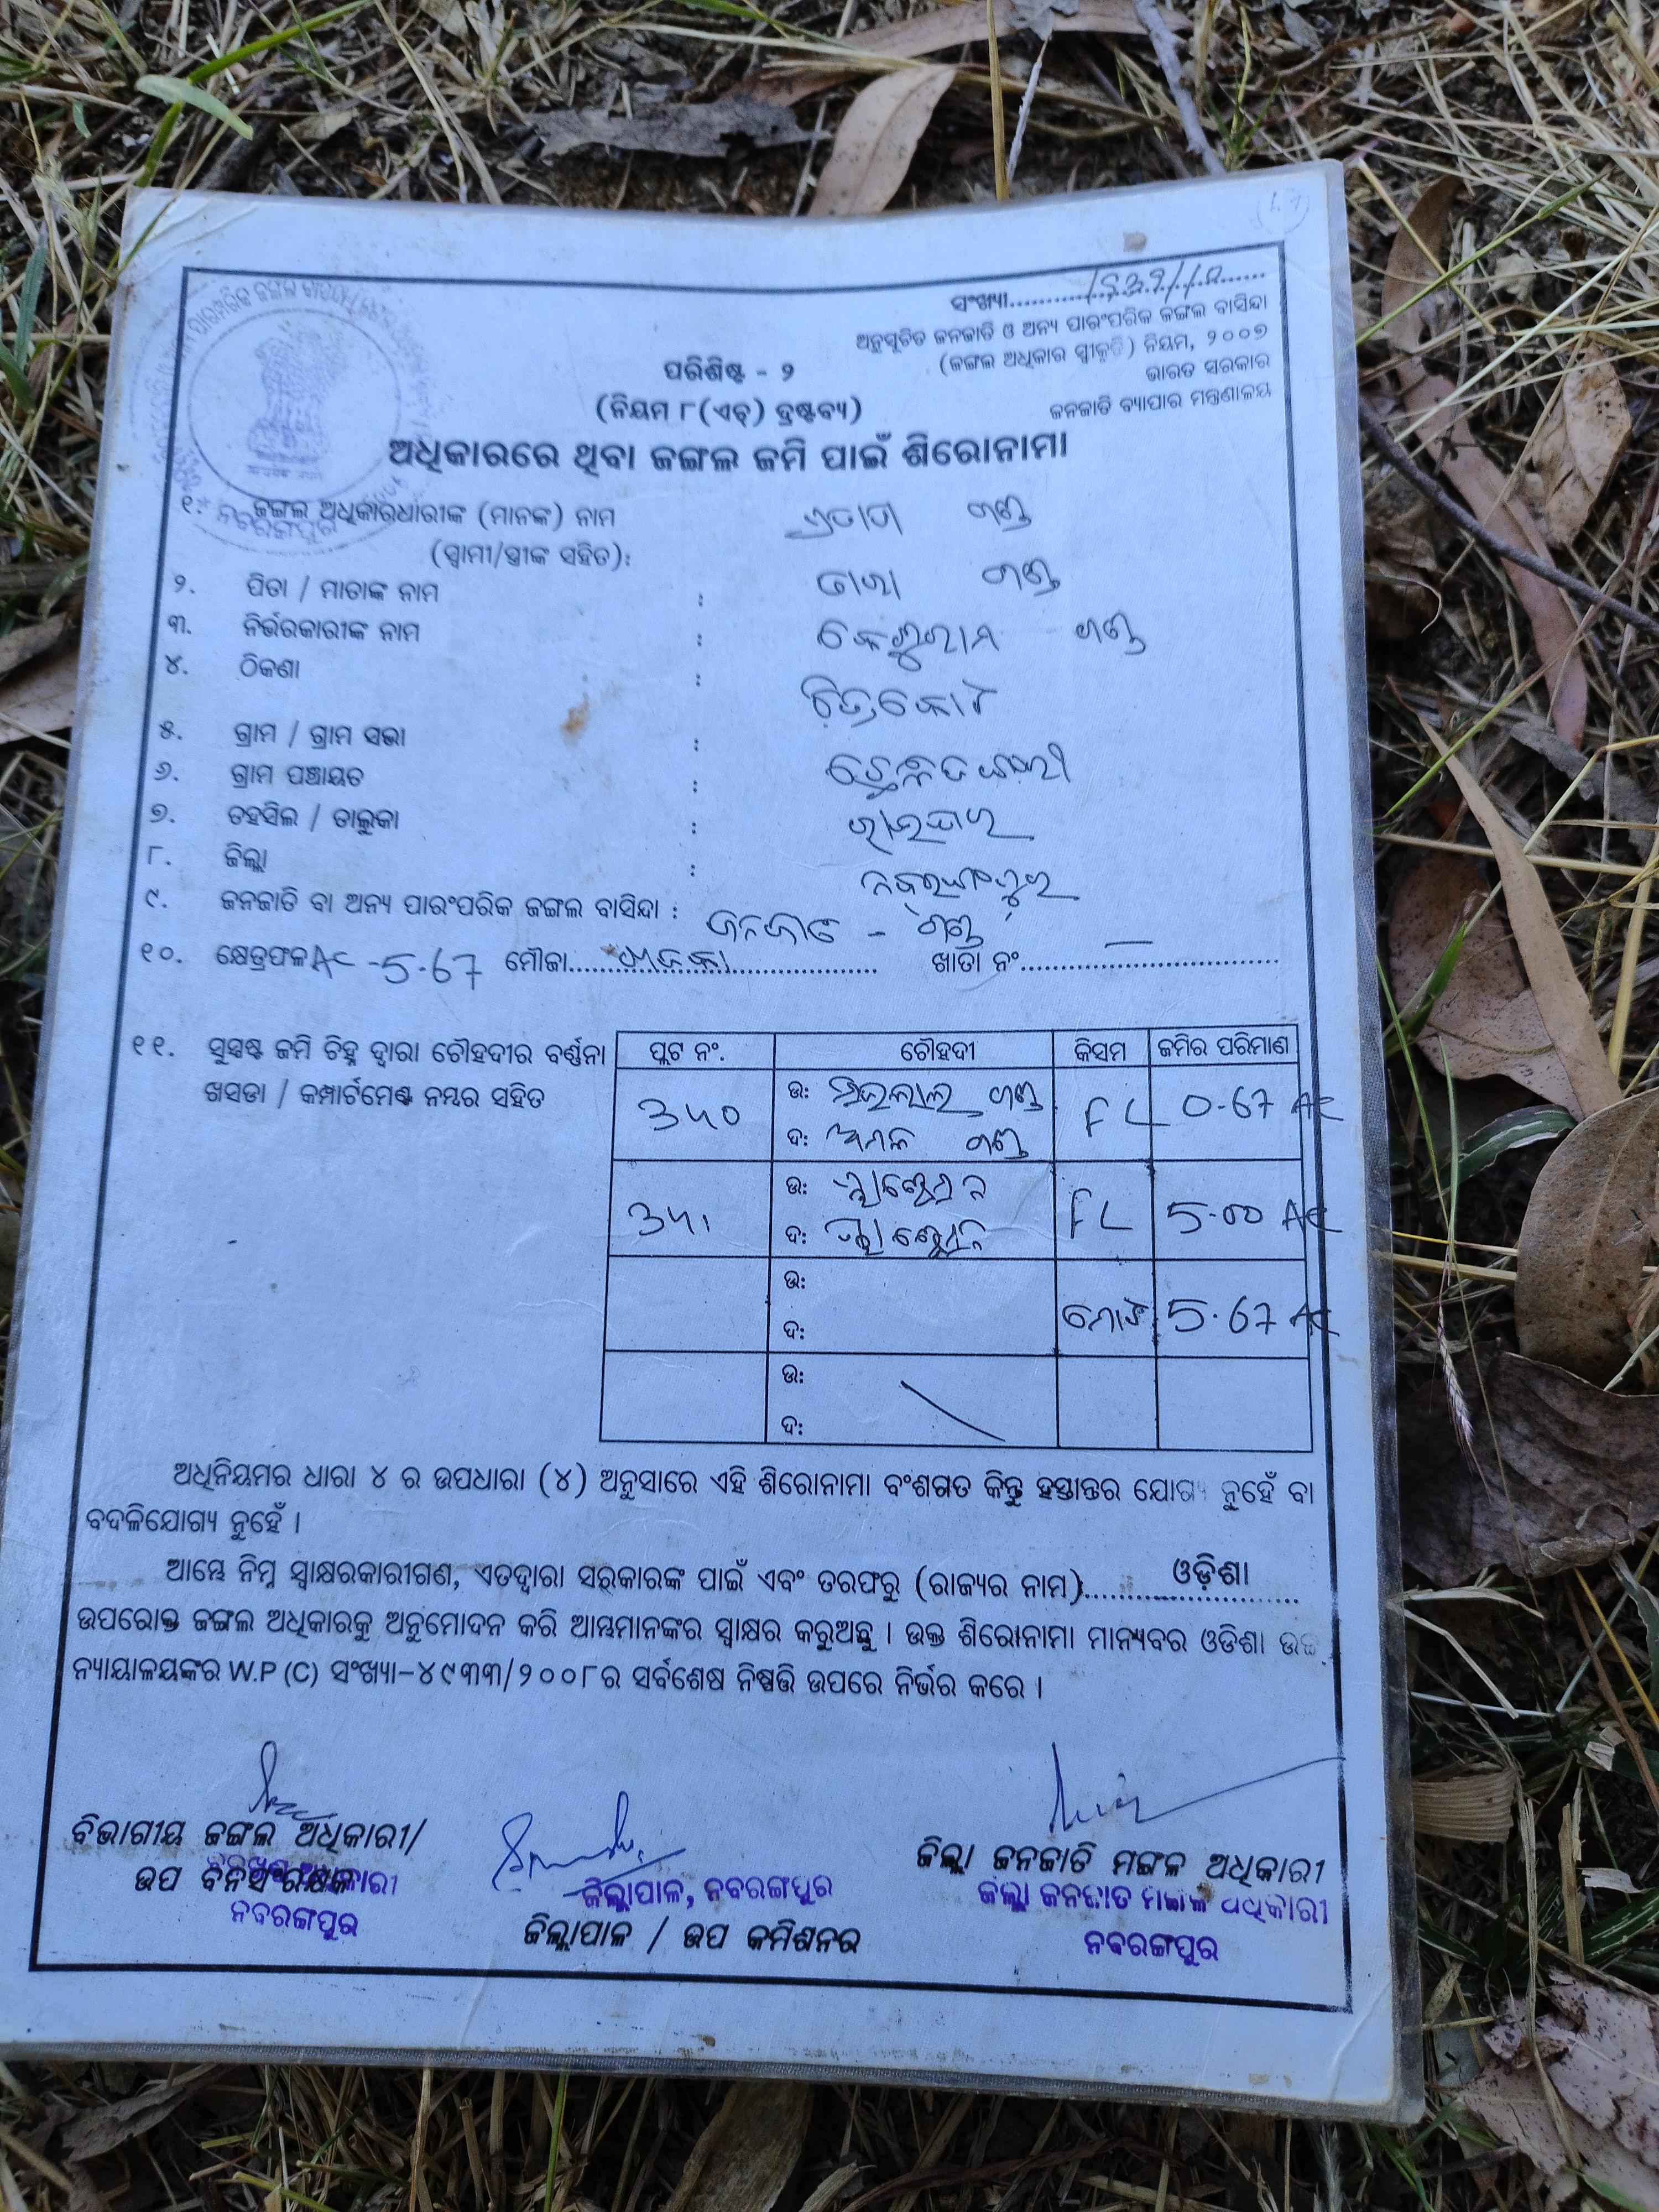 ସଂଖ୍ୟା
ଅନୁସୂଚିତ ଜନଜାତି ଓ ଅନ୍ୟ ପାରଂପରିକ ଜଙ୍ଗଲ ବାସିନ୍ଦା
(ଜଙ୍ଗଲ ଅଧିକାର ସ୍ୱୀକୃତି) ନିୟମ, ୨୦୦୭
ଭାରତ ସରକାର
ଜନଜାତି ବ୍ୟାପାର ମନ୍ତ୍ରଣାଳୟ
ପରିଶିଷ୍ଟ - ୨
(ନିୟମ ୮(ଏଚ୍) ଦ୍ରଷ୍ଟବ୍ୟ)
ଅଧିକାରରେ ଥିବା ଜଙ୍ଗଲ ଜମି ପାଇଁ ଶିରୋନାମା
୧. ଜଙ୍ଗଲ ଅଧିକାରଧାରୀଙ୍କ (ମାନଙ୍କ) ନାମ ଗଣ୍ଡ
(ସ୍ୱାମୀ/ସ୍ତ୍ରୀଙ୍କ ସହିତ):
୨. ପିତା / ମାତାଙ୍କ ନାମ : ଗଣ୍ଡ
୩. ନିର୍ଭରକାରୀଙ୍କ ନାମ : ଗଣ୍ଡ
୪. ଠିକଣା :
୫. ଗ୍ରାମ / ଗ୍ରାମ ସଭା :
୬. ଗ୍ରାମ ପଞ୍ଚାୟତ :
୭. ତହସିଲ / ତାଲୁକା : ରାଇଘର
୮. ଜିଲ୍ଲା : ନବରଙ୍ଗପୁର
୯. ଜନଜାତି ବା ଅନ୍ୟ ପାରଂପରିକ ଜଙ୍ଗଲ ବାସିନ୍ଦା : ଜନଜାତି - ଗଣ୍ଡ
୧୦. କ୍ଷେତ୍ରଫଳ AC -5.67 ମୌଜା ଖାତା ନଂ —
୧୧. ସୁସ୍ପଷ୍ଟ ଜମି ଚିହ୍ନ ଦ୍ୱାରା ଚୌହଦୀର ବର୍ଣ୍ଣନା
ଖସଡା / କମ୍ପାର୍ଟମେଣ୍ଟ ନମ୍ବର ସହିତ
ପ୍ଲଟ ନଂ. ଚୌହଦୀ କିସମ ଜମିର ପରିମାଣ
୩୪୦ ଉ: ଗଣ୍ଡ FL 0.67 AC
ଦ: ଗଣ୍ଡ
୩୪୧ ଉ: FL 5.00 AC
ଦ:
ଉ:
ଦ: ମୋଟ 5.67 AC
ଉ:
ଦ:
ଅଧିନିୟମର ଧାରା ୪ ର ଉପଧାରା (୪) ଅନୁସାରେ ଏହି ଶିରୋନାମା ବଂଶଗତ କିନ୍ତୁ ହସ୍ତାନ୍ତର ଯୋଗ୍ୟ ନୁହେଁ ବା
ବଦଳିଯୋଗ୍ୟ ନୁହେଁ ।
ଆମ୍ଭେ ନିମ୍ନ ସ୍ୱାକ୍ଷରକାରୀଗଣ, ଏତଦ୍ୱାରା ସରକାରଙ୍କ ପାଇଁ ଏବଂ ତରଫରୁ (ରାଜ୍ୟର ନାମ) ଓଡ଼ିଶା
ଉପରୋକ୍ତ ଜଙ୍ଗଲ ଅଧିକାରକୁ ଅନୁମୋଦନ କରି ଆମ୍ଭମାନଙ୍କର ସ୍ୱାକ୍ଷର କରୁଅଛୁ । ଉକ୍ତ ଶିରୋନାମା ମାନ୍ୟବର ଓଡିଶା ଉଚ୍ଚ
ନ୍ୟାୟାଳୟଙ୍କର W.P (C) ସଂଖ୍ୟା-୪୯୩୩/୨୦୦୮ର ସର୍ବଶେଷ ନିଷ୍ପତ୍ତି ଉପରେ ନିର୍ଭର କରେ ।
ବିଭାଗୀୟ ଜଙ୍ଗଲ ଅଧିକାରୀ/
ଉପ ବନସଂରକ୍ଷକ
ନବରଙ୍ଗପୁର
ଜିଲ୍ଲାପାଳ, ନବରଙ୍ଗପୁର
ଜିଲ୍ଲାପାଳ / ଉପ କମିଶନର
ଜିଲ୍ଲା ଜନଜାତି ମଙ୍ଗଳ ଅଧିକାରୀ
ଜିଲ୍ଲା ଜନଜାତି ମଙ୍ଗଳ ଅଧିକାରୀ
ନବରଙ୍ଗପୁର